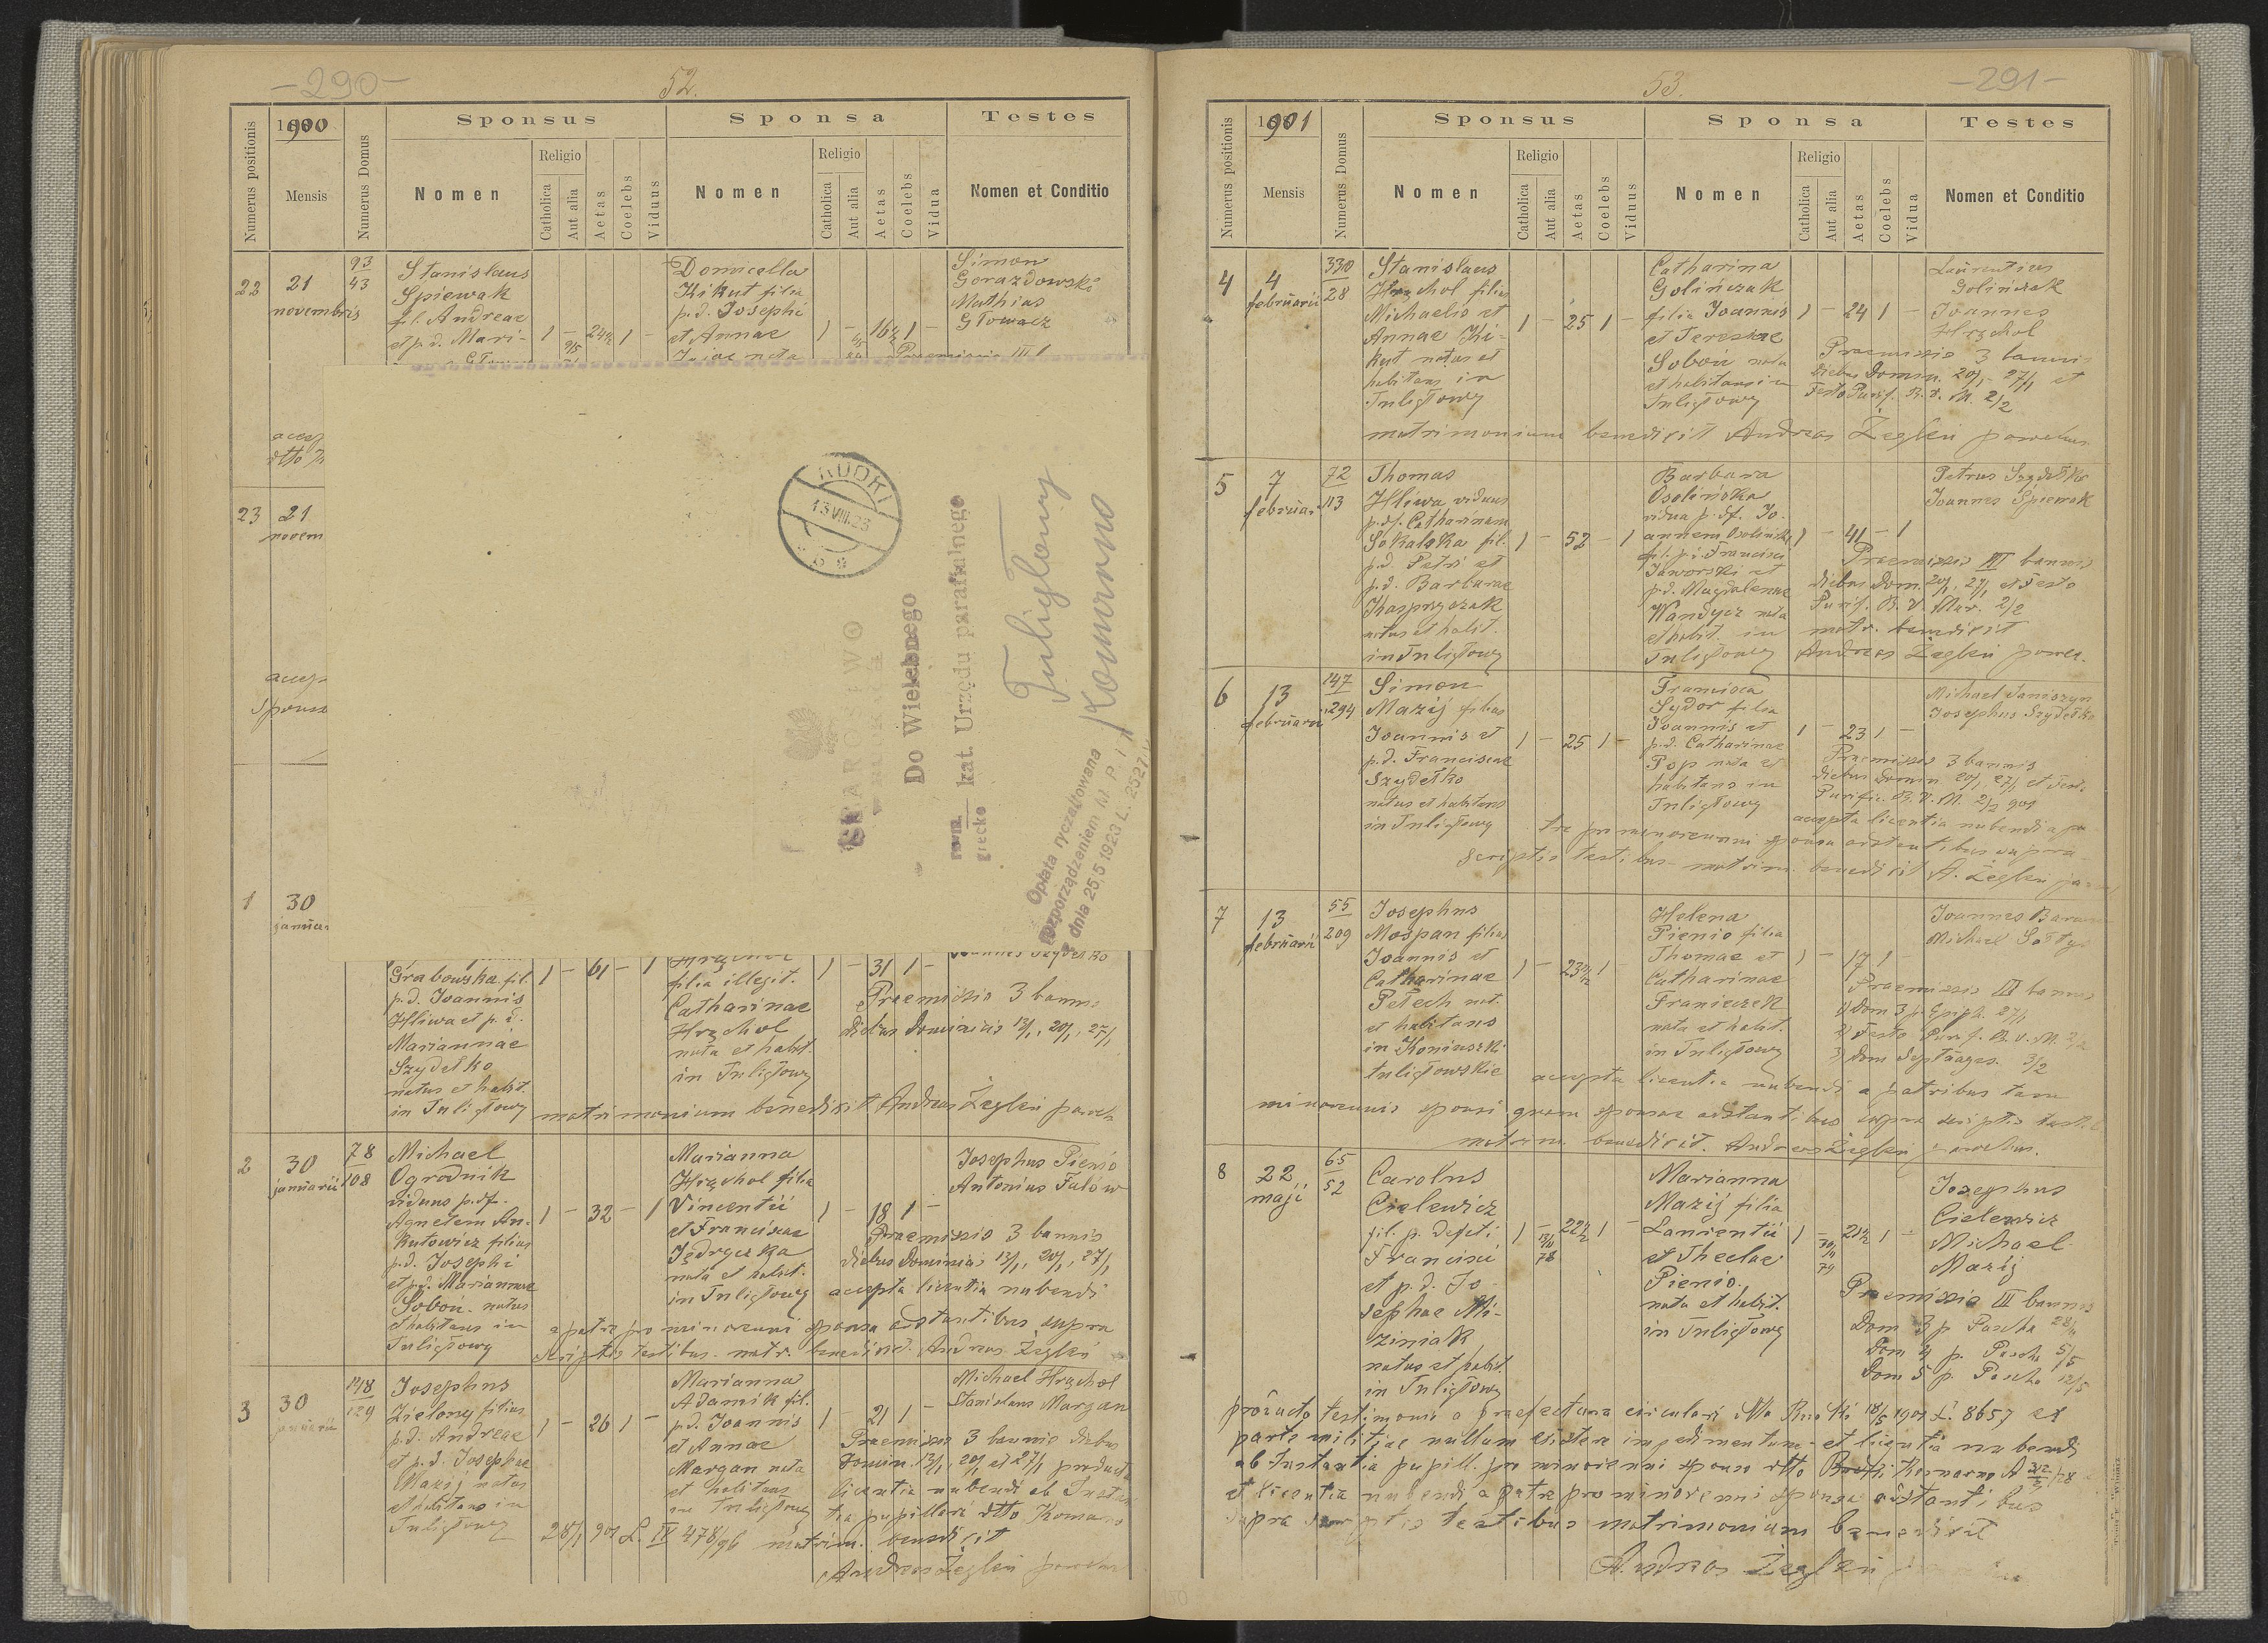 -290-
52.
Numerus positionis
1900
Mensis
Numerus Domus
Sponsus
Nomen
Religio
Catholica
Aut alia
Aetas
Coelebs
Viduus
Sponsa
Nomen
Religio
Catholica
Aut alia
Aetas
Coelebs
Vidua
Testes
Nomen et Conditio
22
21
novembris
93
43
Stanislaus
Spiewak
fil. Andreae
et p.d. Mari-
1 -
1
Domicella
Kikut filia
p.d. Josephi
et Annae
1 -
1 -
Simon
Gorazdowski
Mathias
Głowacz
23
21
novem
RUDKI
Do Wielebnego
kat. Urzędu parafialnego
grecko
Tuligłowy
Komarno
Opłata ryczałtowana
rozporządzeniem M. P. i T.
z dnia 25.5 1923 L. 2527
1
30
januar
Grabowska fil.
p.d. Joannis
Hliwa et p.d.
Mariannae
Szydełko
natus et habit.
in Tuligłowy
1 - 61 - 1
filia illegit.
Catharinae
Hrzchol
nata et habit.
in Tuligłowy
1 - 31 1 -
Praemissis 3 bannis
diebus Dominicis 13/1, 20/1, 27/1
matrimonium benedixit Andreas Żegleń paroch
2
30
januarii
78
108
Michael
Ogrodnik
viduus p. df.
Agnetem An-
kutowicz filius
p.d. Josephi
et p.d. Mariannae
Soboń natus
et habitans in
Tuligłowy
1 - 32 - 1
Marianna
Hrzchol filia
Vincentii
et Franciscae
Jędryczka
nata et habit.
in Tuligłowy
1 - 18 1 -
Josephus Pienio
Antonius Fulów
Praemissis 3 bannis
diebus Dominicis 13/1, 20/1, 27/1
accepta licentia nubendi
a patre pro minorenni sponsa adstantibus supra
scriptis testibus matr. benedixit. Andreas Żegleń
3
30
januarii
148
129
Josephus
Zielony filius
p.d. Andreae
et p.d. Josephae
Mazij natus
et habitans in
Tuligłowy
1 - 26 1 -
Marianna
Adamik fil.
p.d. Joannis
et Annae
Margan nata
et habitans
in Tuligłowy
1 - 21 1 -
Michael Hrzchol
Stanislaus Margan
Praemissis 3 bannis diebus
Domin. 13/1, 20/1 et 27/1 producta
licentia nubendi ab Instan
tia pupillari dtto Komarno
28/1 901 L. IV 478/96 matrim. benedixit
Andreas Żegleń parochus
53.
-291-
Numerus positionis
1901
Mensis
Numerus Domus
Sponsus
Nomen
Religio
Catholica
Aut alia
Aetas
Coelebs
Viduus
Sponsa
Nomen
Religio
Catholica
Aut alia
Aetas
Coelebs
Vidua
Testes
Nomen et Conditio
4
4
februarii
330
28
Stanislaus
Hrzchol filius
Michaelis et
Annae Ki-
kut natus et
habitans in
Tuligłowy
1 - 25 1 -
Catharina
Golińczak
filia Joannis
et Teresiae
Soboń nata
et habitans in
Tuligłowy
1 - 24 1 -
Laurentius
Golińczak
Joannes
Hrzchol
Praemissis 3 bannis
diebus Domin. 20/1, 27/1 et
Festo Purif. B. V. M. 2/2
matrimonium benedixit Andreas Żegleń parochus
5
7
februar
72
113
Thomas
Hliwa viduus
p. df. Catharinam
Sokalska fil.
p.d. Petri et
p.d. Barbarae
Kasprzczak
natus et habit.
in Tuligłowy
1 - 52 - 1
Barbara
Osolińska
vidua p. df. Jo-
annem Osoliński
fil. p.d. Francisci
Jaworski et
p.d. Magdalenae
Wandycz nata
et habit. in
Tuligłowy
1 - 41 - 1
Petrus Szydełko
Joannes Spiewak
Praemissis III bannis
diebus Dom. 20/1, 27/1 et Festo
Purif. B. V. Mar. 2/2
matr. benedixit
Andreas Żegleń paroch.
6
13
februarii
147
294
Simon
Mazij filius
Joannis et
p.d. Franciscae
Szydełko
natus et habitans
in Tuligłowy
1 - 25 1 -
Francisca
Sydor filia
Joannis et
p.d. Catharinae
Pop nata et
habitans in
Tuligłowy
1 - 23 1 -
Michael Janiszyn
Josephus Szydełko
Praemissis 3 bannis
diebus Domin 20/1, 27/1 et Fest.
Purific. B. V. M. 2/2 901
accepta licentia nubendi a pa
tre pro minorenni sponsa adstantibus supra
scriptis testibus matrim. benedixit A. Żegleń
7
13
februarii
55
209
Josephus
Mospan filius
Joannis et
Catharinae
Petech nat.
et habitans
in Koniuszki
tuligłowskie
1 -
1 -
Helena
Pienio filia
Thomae et
Catharinae
Franieczek
nata et habit.
in Tuligłowy
1 - 17 1 -
Joannes Baran
Michael
Praemissis III bannis
1) Dom 3 p. Epiph. 27/1
2) Festo Purif. B. V. M. 2/2
3) Dom Septuages. 3/2
accepta licentia nubendi a patribus tam
minorennis sponsi quam sponsae adstantibus supra scriptis test.
matrim. benedixit. Andreas Żegleń parochus.
8
22
maji
65
52
Carolus
Cielewicz
fil. p. defcti
Francisci
et p.d. Jo-
sephae Mi-
ziniak
natus et habit.
in Tuligłowy
1 -
78
1 -
Marianna
Mazij filia
Laurentii
et Theclae
Pienio.
nata et habit.
in Tuligłowy
1 -
79
1 -
Josephus
Cielewicz
Michael
Mazij
Praemissis III bannis
Dom 3 p. Pascha 28/4
Dom 4 p. Pascha 5/5
Dom 5 p. Pascha 12/5
producto testimonio a praefectura circulari dtto Rudki 18/5 1901 L. 8657 ex
parte militiae nullum existere impedimentum et licentia nubendi
ab Instantia pupill. pro minorenni sponso dtto Komarno
et licentia nubendi a patre pro minorenni sponsa adstantibus
supra scriptis testibus matrimonium benedixit
Andreas Żegleń